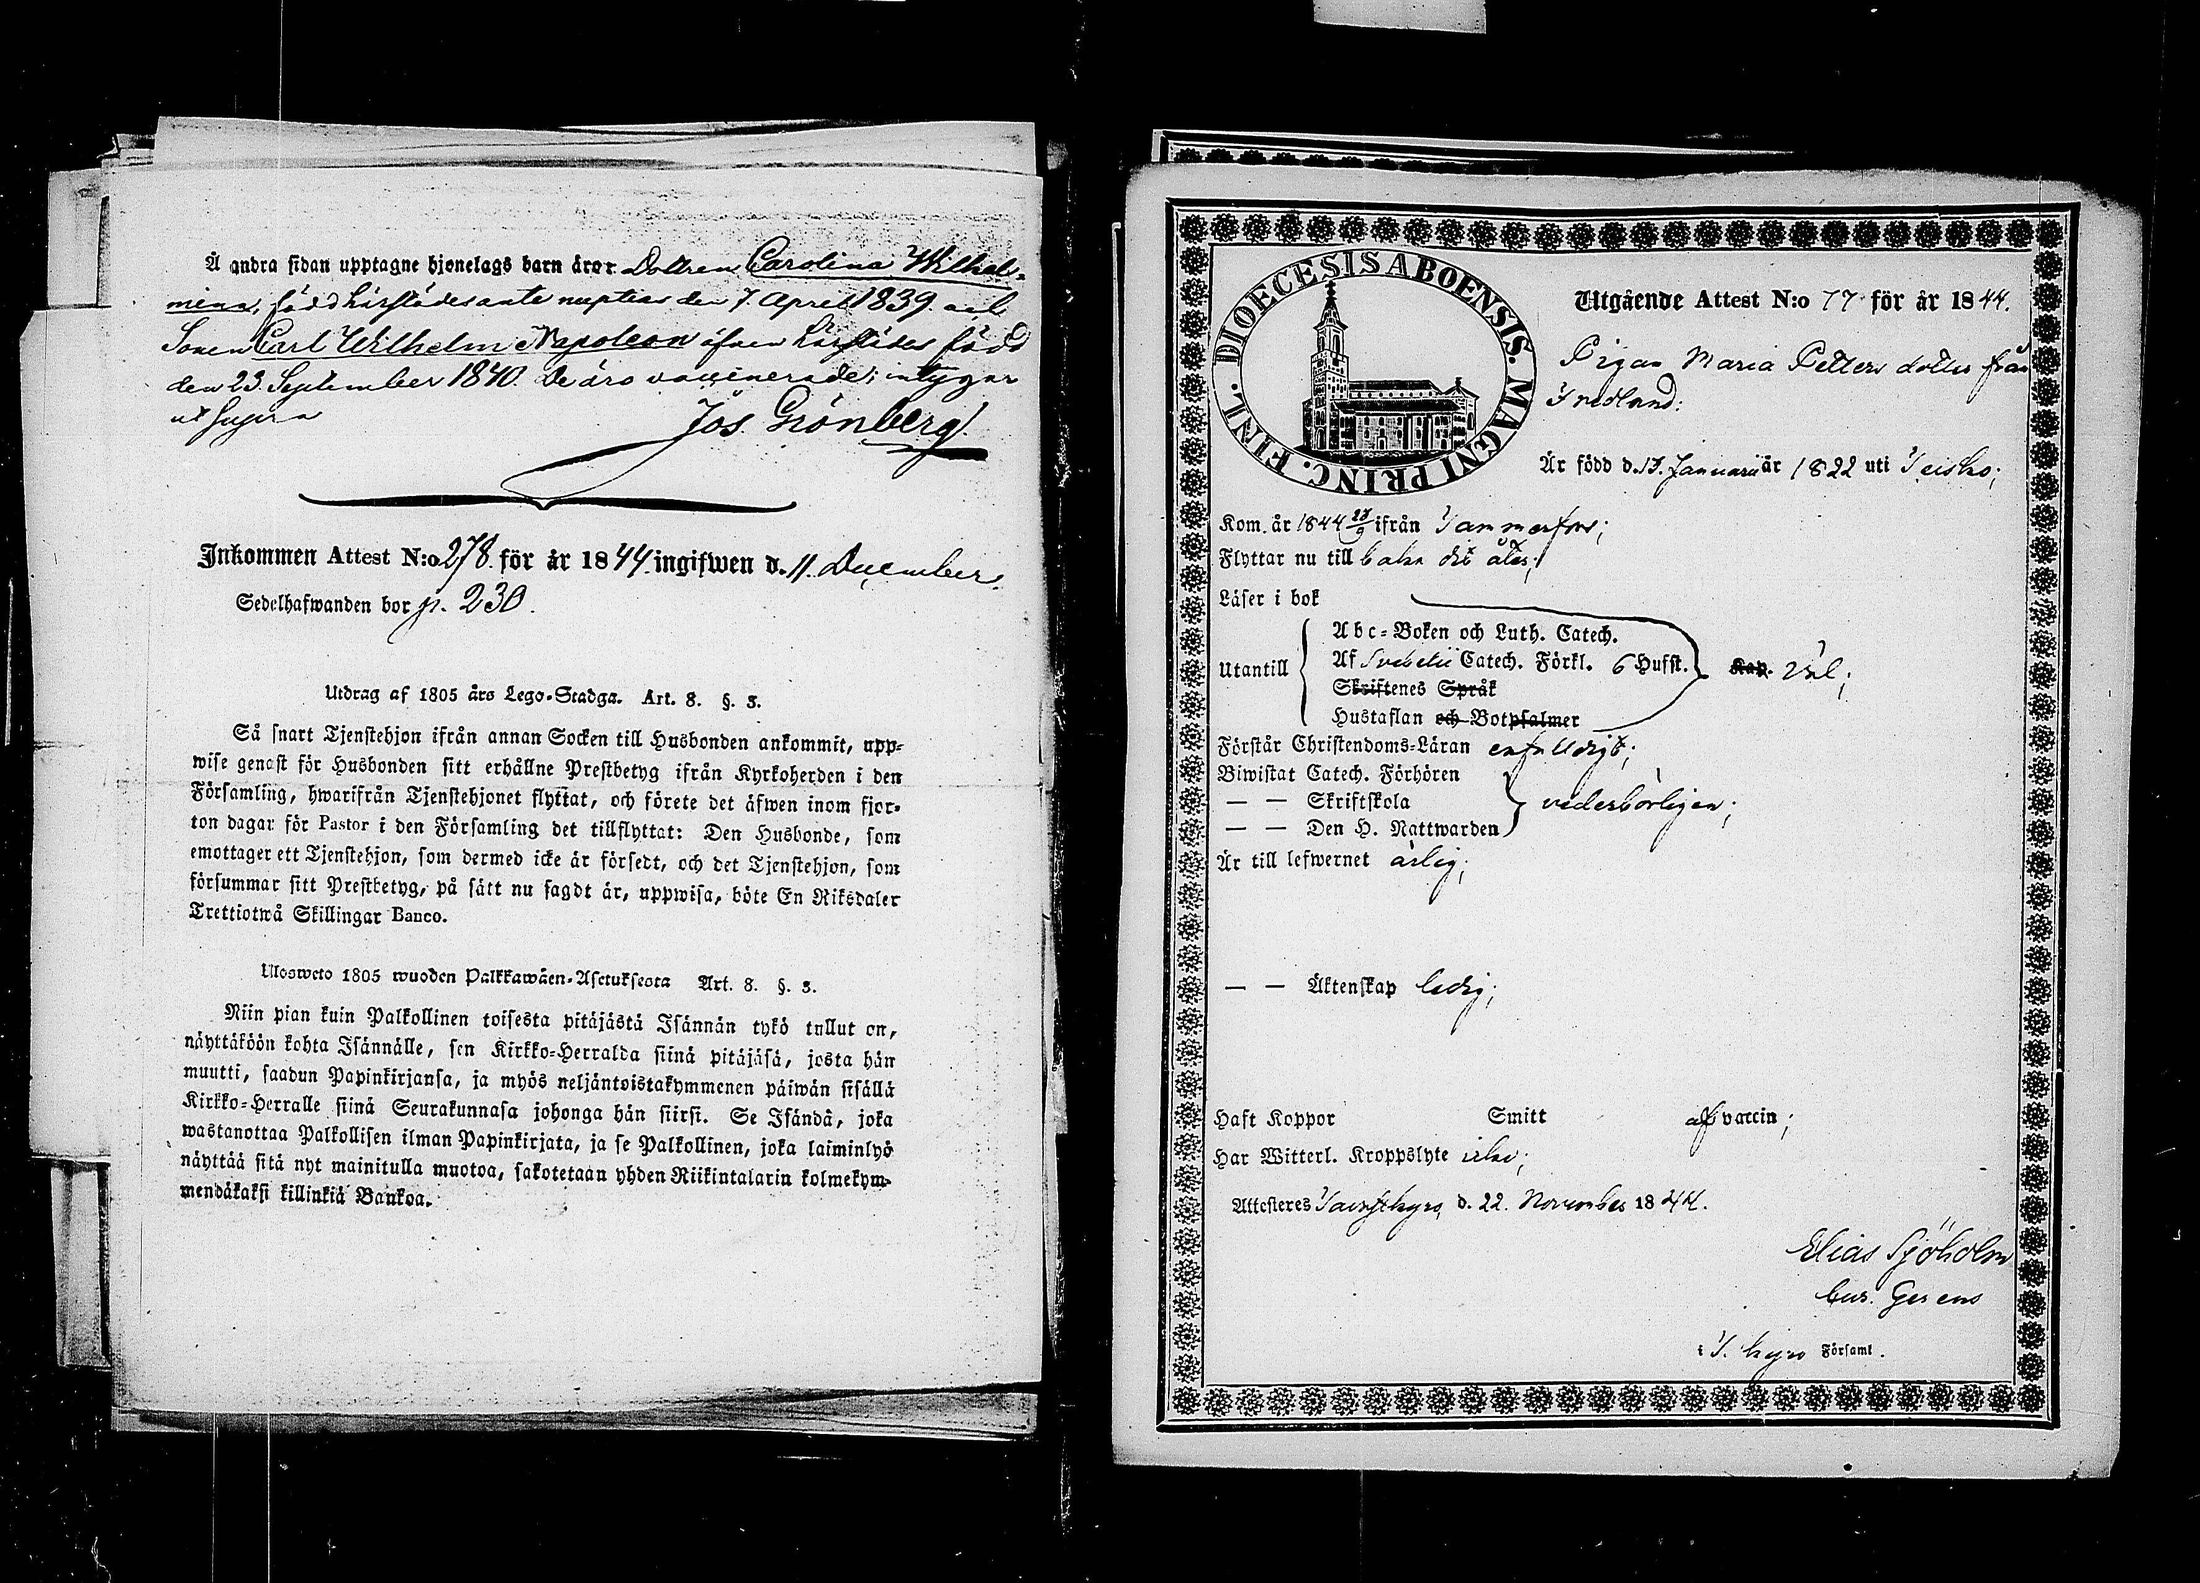 Å andra sidan upptagne hjonelags barn äro: Dottren Carolina Wilhel-
mina, född härstädes ante nuptias den 7 April 1839. och
Sonen Carl Wilhelm Napoleon äfven härstädes född
den 23 September 1840. De äro vaccinerade; intygar
ut supra
Jos. Grönberg.
Inkommen Attest N:o 278. för år 1844. ingifwen d. 11. December.
Sedelhafwanden bor p. 230.
Utdrag af 1805 års Lego-Stadga. Art. 8. §. 3.
Så snart Tjenstehjon ifrån annan Socken till Husbonden ankommit, upp-
wise genast för Husbonden sitt erhållne Prestbetyg ifrån Kyrkoherden i den
Församling, hwarifrån Tjenstehjonet flyttat, och förete det äfwen inom fjor-
ton dagar för Pastor i den Församling det tillflyttat: Den Husbonde, som
emottager ett Tjenstehjon, som dermed icke är försedt, och det Tjenstehjon, som
försummar sitt Prestbetyg, på sätt nu sagdt är, uppwisa, böte En Riksdaler
Trettiotwå Skillingar Banco.
Ulosweto 1805 wuoden Palkkawäen-Asetuksesta Art. 8. §. 3.
Niin pian kuin Palkollinen toisesta pitäjästä Isännän tykö tullut on,
näyttäköön kohta Isännälle, sen Kirkko-Herralda siinä pitäjäsä, josta hän
muutti, saadun Papinkirjansa, ja myös neljäntoistakymmenen päiwän sisällä
Kirkko-Herralle siinä Seurakunnasa johonga hän siirsi. Se Isändä, joka
wastanottaa Palkollisen ilman Papinkirjata, ja se Palkollinen, joka laiminlyö
näyttää sitä nyt mainitulla muotoa, sakotetaan yhden Riikintalarin kolmekym-
mendäkaksi killinkiä Bankoa.
DIOECESIS ABOENSIS. MAGNI PRINC. FINL.
Utgående Attest N:o 77 för år 1844.
Pigan Maria Petters dotter från
Är född d. 13. Januarii år 1822 uti Teisko;
Kom. år 1844 23/9 ifrån Tammerfors;
Flyttar nu till baka dit åter;
Läser i bok
Utantill
Abc-Boken och Luth. Catech.
Af Svebelii Catech. Förkl. 6 Hufst. Kap. väl;
Skriftenes Språk
Hustaflan och Botpsalmer
Förstår Christendoms-Läran enfaldigt;
Biwistat Catech. Förhören
— — Skriftskola vederbörligen;
— — Den H. Nattwarden
Är till lefwernet ärlig;
— — Äktenskap ledig;
Haft Koppor Smitt af vaccin;
Har Witterl. Kroppslyte icke;
Attesteres Tavastkyro, d. 22. November 1844.
Elias Sjöholm
Cur. Gerens
i T. kyro Församl.